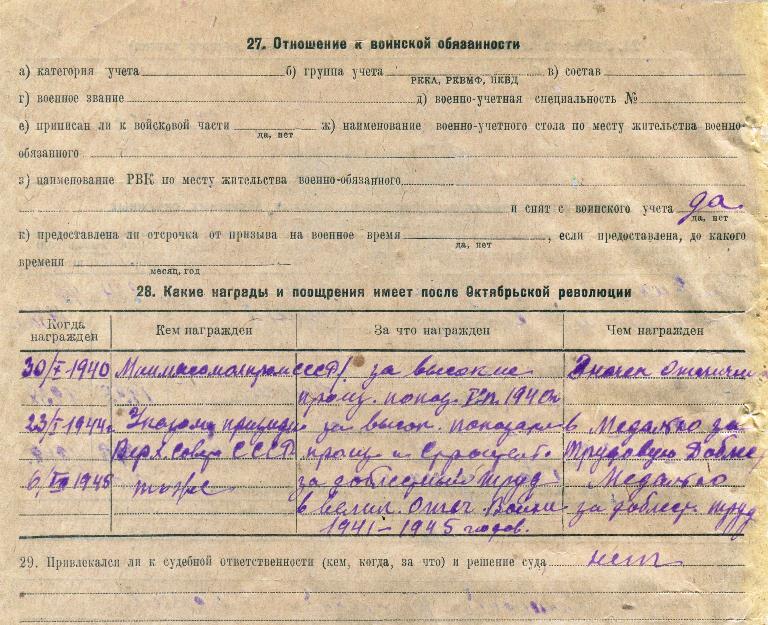 27. Отношение к воинской обязанности
а) категория учета б) группа учета в) состав
РККА, РКВМФ, НКВД
г) военное звание д) военно-учетная специальность №
е) приписан ли к войсковой части ж) наименование военно-учетного стола по месту жительства военно-
да, нет
обязанного
з) наименование РВК по месту жительства военно-обязанного
и снят с воинского учета да
да, нет
к) предоставлена ли отсрочка от призыва на военное время , если предоставлена, до какого
да, нет
времени
месяц, год
28. Какие награды и поощрения имеет после Октябрьской революции
Когда награжден Кем награжден За что награжден Чем награжден
30/V 1940 СССР/. за высокие Значек
произ. показ. 1940г
23/I 1944г. Указом президи за высок. показате в. Медалью за
Верх. Совета СССР произ и Трудовую Добле
6/ 1945 тоже за доблестный труд Медалью
в велик. Отеч. Войне за доблест. труд
1941-1945 годов.
29. Привлекался ли к судебной ответственности (кем, когда, за что) и решение суда нет